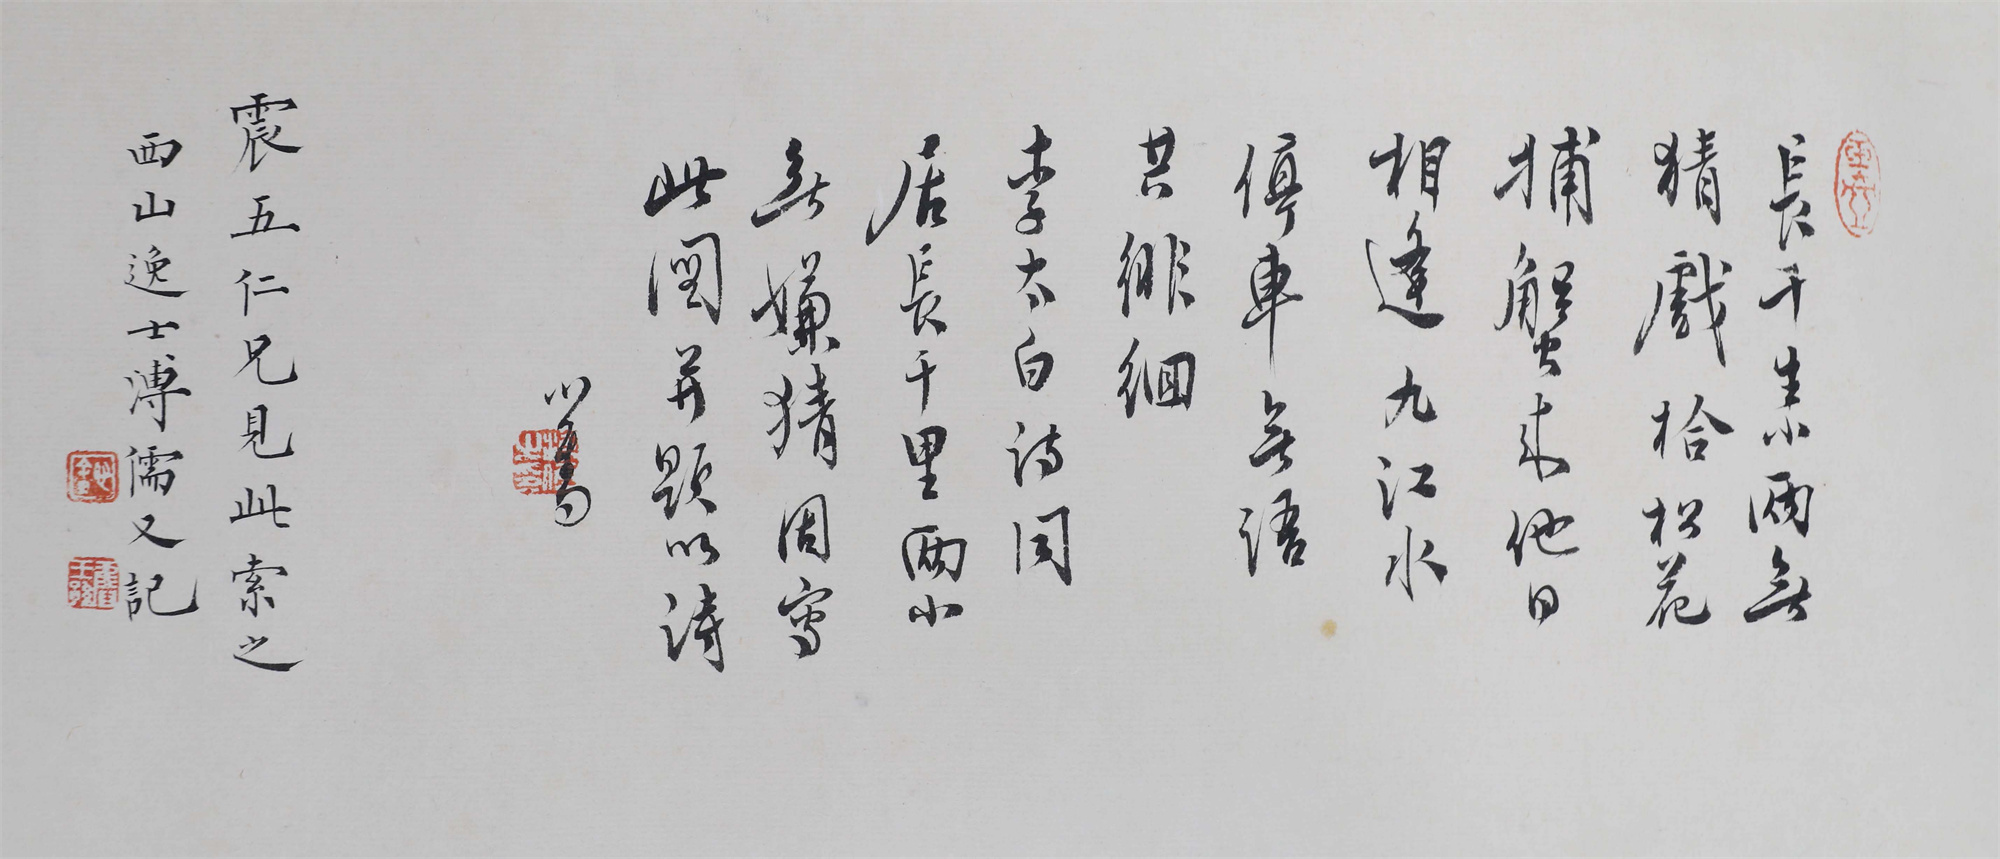 長干生小兩無
猜戲拾松花
捕蟹來他日
相逢九江水
停車無語
共徘徊
李太白詩同
居長干里兩小
無嫌猜因寫
此圖并題以詩
心畬
震五仁兄見此索之
西山逸士溥儒又記
舊王孫